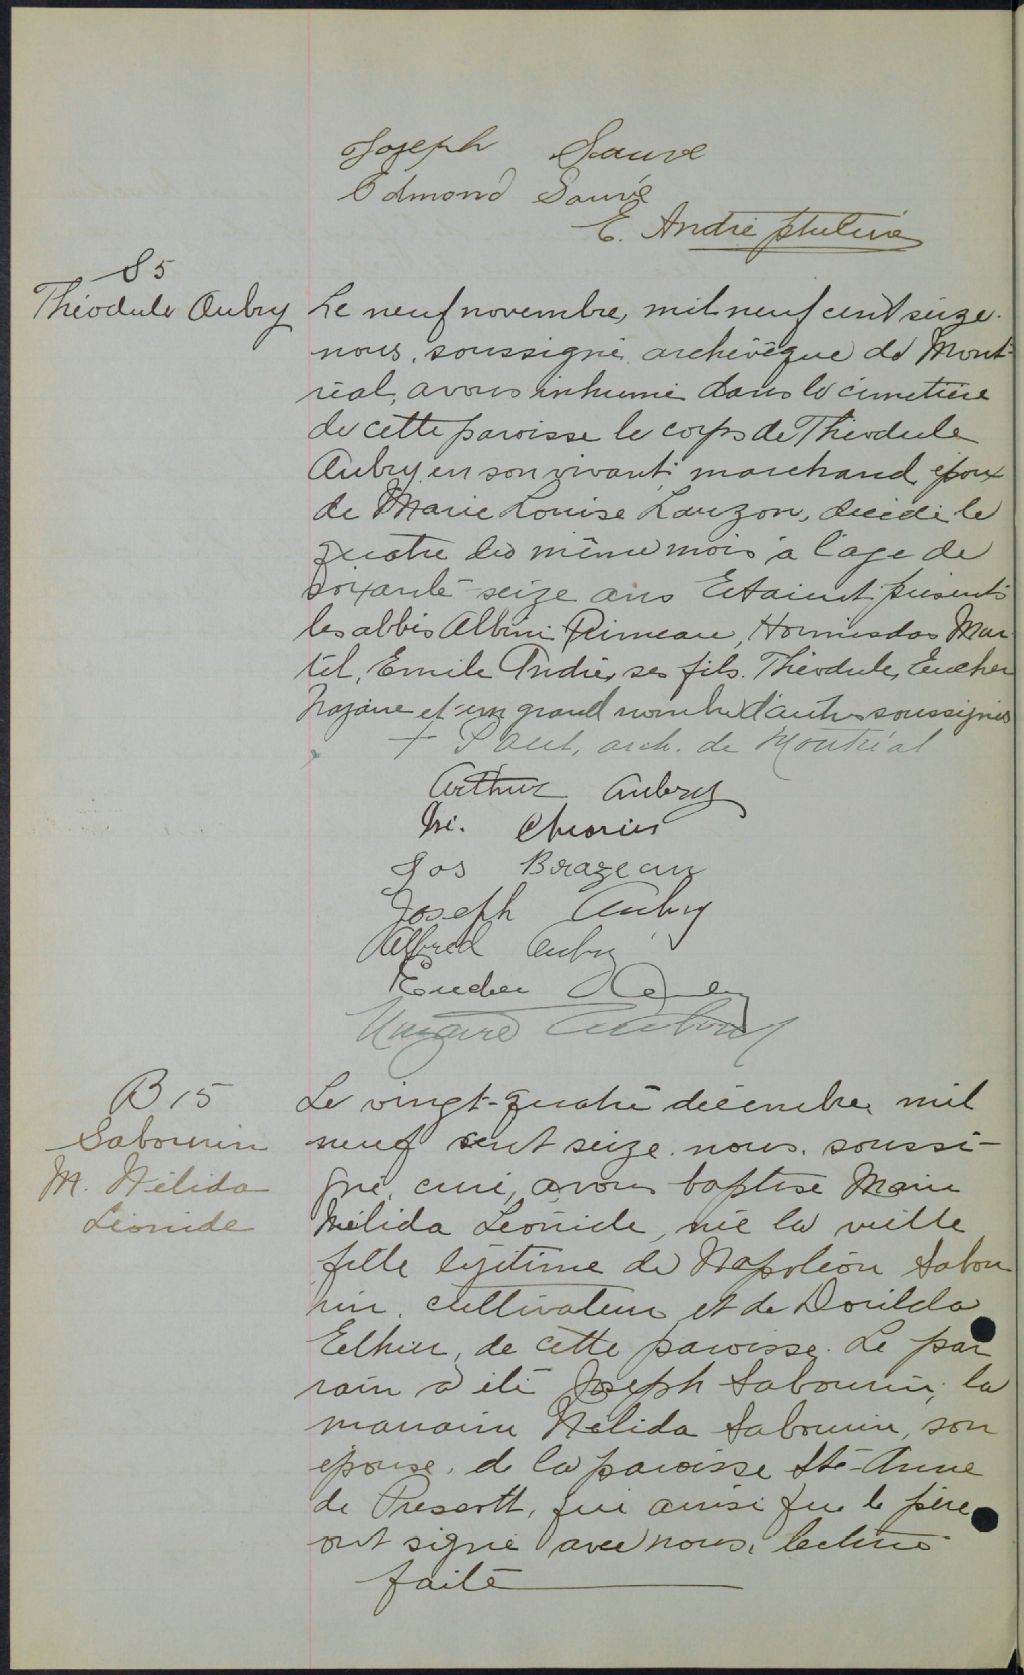 Joseph Sauve
Edmond Sauvé
E. André ptre curé
S 5
Théodule Aubry
Le neuf novembre, mil neuf cent seize.
nous, soussigné, archevêque de Mont-
réal, avons inhumé dans le cimetière
de cette paroisse le corps de Théodule
Aubry en son vivant, marchand, époux
de Marie Louise Lauzon, décédé le
quatre du même mois à l'age de
soixante-seize ans Etaient présents
les abbés Albini Primeau, Hormisdas Mar-
tel, Emile André, ses fils. Théodule, Eucher
Nazaire et un grand nombre d'autres soussignés
+ Paul, arch. de Montréal
Arthur Aubry
Jos Brazeau
Joseph Aubry
Alfred Aubry
Eucher Aubry
Nazaire Aubry
B 15
Sabourin
M. Nélida
Léonide
Le vingt-quatre décembre, mil
neuf cent seize. nous. soussi-
gné, curé, avons baptisé Marie
Nélida Léonide, née la veille
fille légitime de Napoléon Sabou
rin, cultivateur et de Dorilda
Ethier, de cette paroisse. Le par
rain a été Joseph Sabourin, la
marraine Nélida Sabourin, son
épouse. de la paroisse Ste-Anne
de Prescott, qui ainsi que le père
ont signé avec nous, lecture
faite